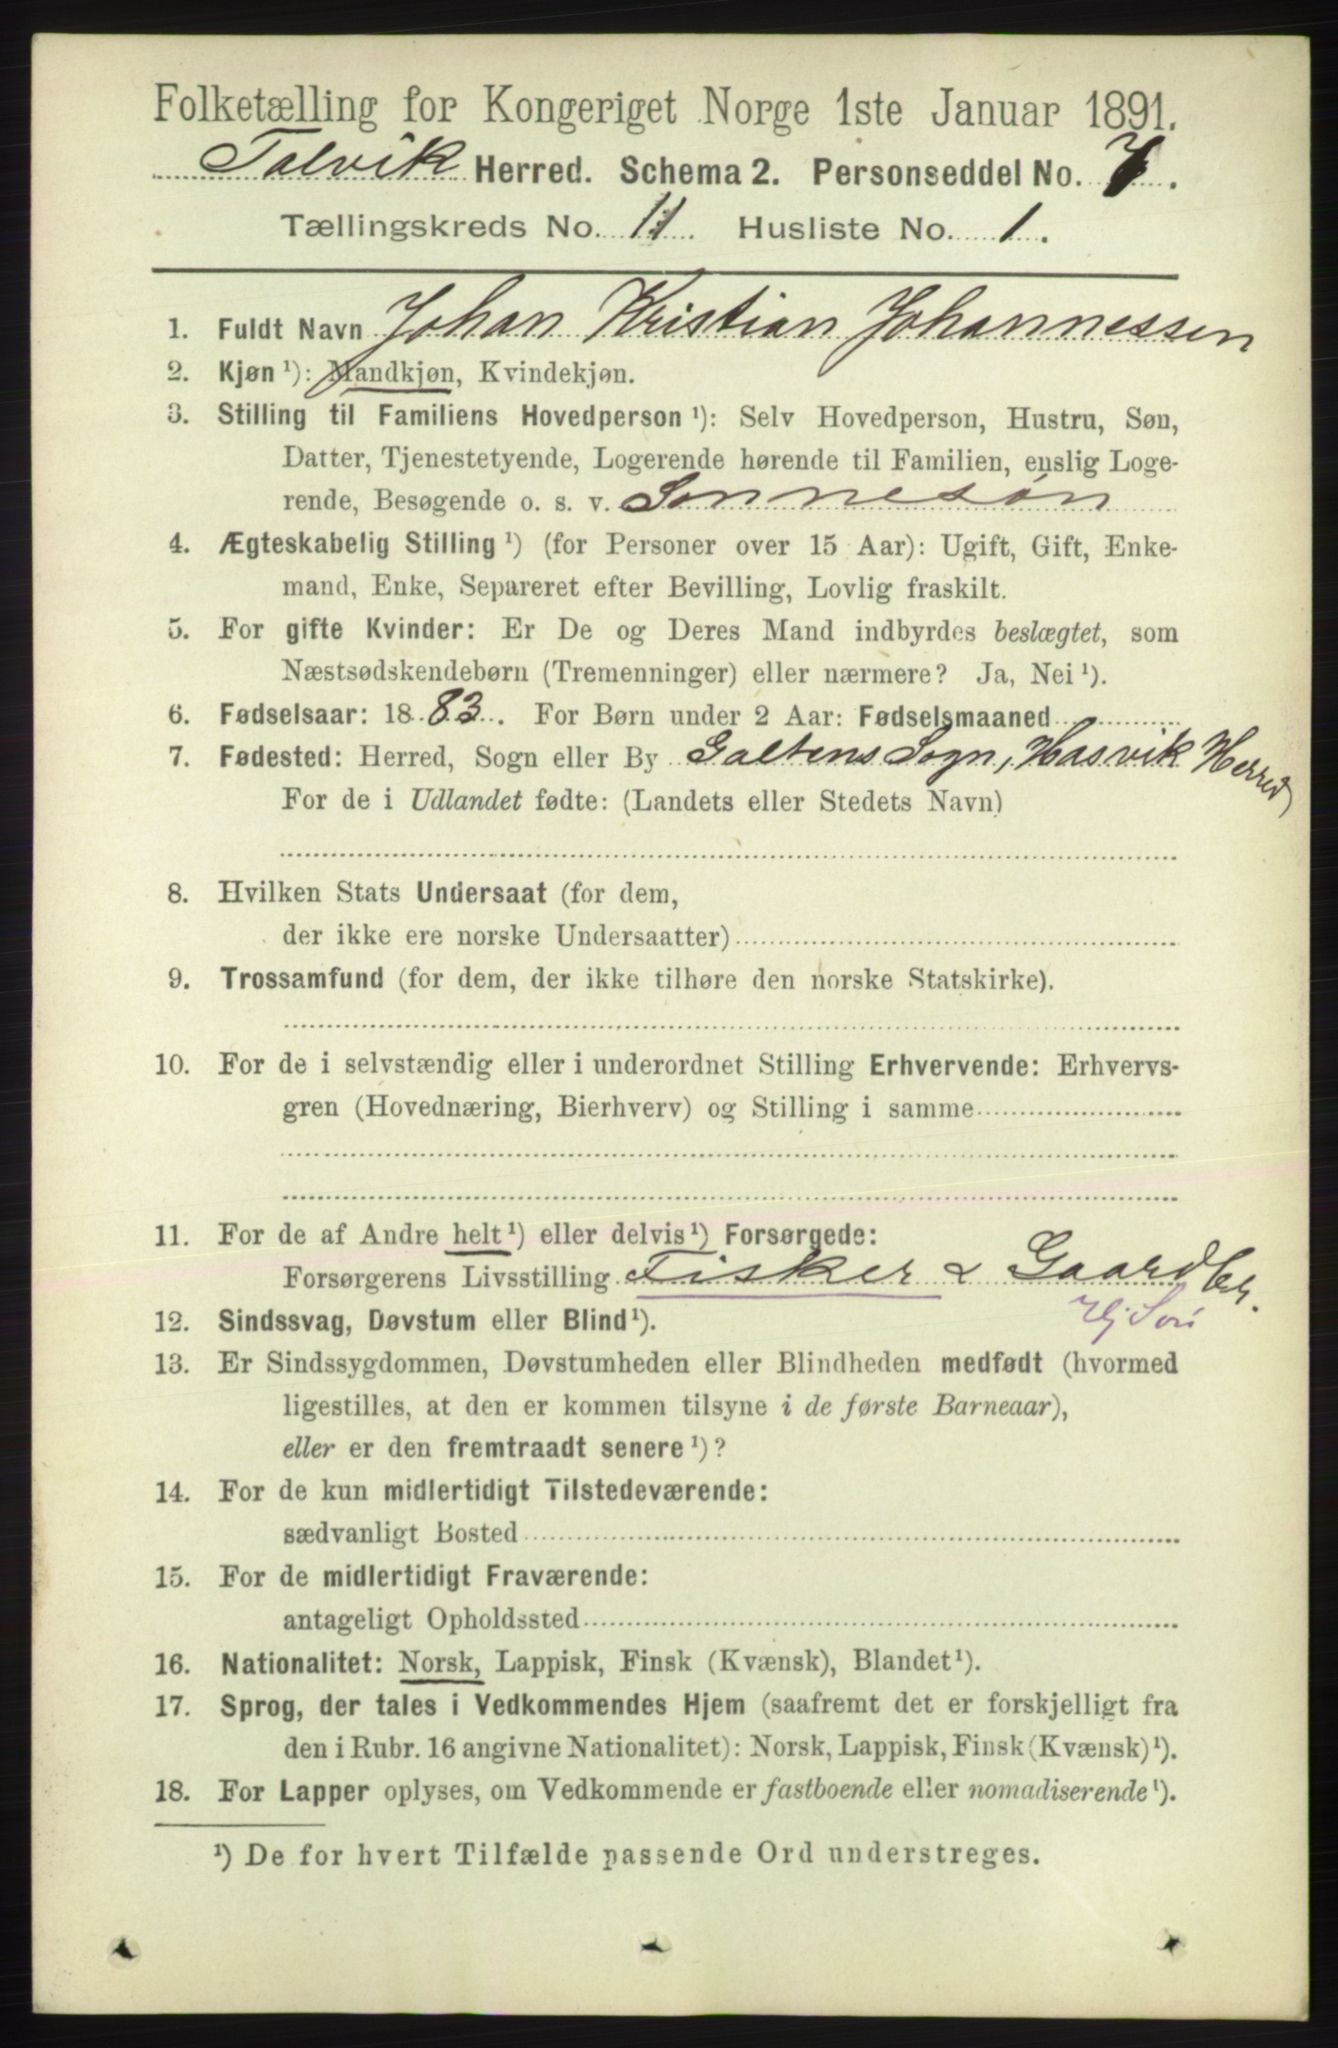 Folketælling for Kongeriget Norge 1ste Januar 1891.
Talvik Herred. Schema 2. Personseddel No. 7.
Tællingskreds No. 11. Husliste No. 1.
1. Fuldt Navn Johan Kristian Johannessen
2. Kjøn ¹): Mandkjøn, Kvindekjøn.
3. Stilling til Familiens Hovedperson ¹): Selv Hovedperson, Hustru, Søn,
Datter, Tjenestetyende, Logerende hørende til Familien, enslig Loge-
rende, Besøgende o. s. v. Sønnesøn
4. Ægteskabelig Stilling ¹) (for Personer over 15 Aar): Ugift, Gift, Enke-
mand, Enke, Separeret efter Bevilling, Lovlig fraskilt.
5. For gifte Kvinder: Er De og Deres Mand indbyrdes beslægtet, som
Næstsødskendebørn (Tremenninger) eller nærmere? Ja, Nei ¹).
6. Fødselsaar: 1883. For Børn under 2 Aar: Fødselsmaaned
7. Fødested: Herred, Sogn eller By Galtens Sogn, Hasvik Herred
For de i Udlandet fødte: (Landets eller Stedets Navn)
8. Hvilken Stats Undersaat (for dem,
der ikke ere norske Undersaatter)
9. Trossamfund (for dem, der ikke tilhøre den norske Statskirke).
10. For de i selvstændig eller i underordnet Stilling Erhvervende: Erhvervs-
gren (Hovednæring, Bierhverv) og Stilling i samme
11. For de af Andre helt ¹) eller delvis ¹) Forsørgede:
Forsørgerens Livsstilling Fisker & Gaardbr.
12. Sindssvag, Døvstum eller Blind ¹).
13. Er Sindssygdommen, Døvstumheden eller Blindheden medfødt (hvormed
ligestilles, at den er kommen tilsyne i de første Barneaar),
eller er den fremtraadt senere ¹)?
14. For de kun midlertidigt Tilstedeværende:
sædvanligt Bosted
15. For de midlertidigt Fraværende:
antageligt Opholdssted
16. Nationalitet: Norsk, Lappisk, Finsk (Kvænsk), Blandet ¹).
17. Sprog, der tales i Vedkommendes Hjem (saafremt det er forskjelligt fra
den i Rubr. 16 angivne Nationalitet): Norsk, Lappisk, Finsk (Kvænsk) ¹).
18. For Lapper oplyses, om Vedkommende er fastboende eller nomadiserende ¹).
¹) De for hvert Tilfælde passende Ord understreges.